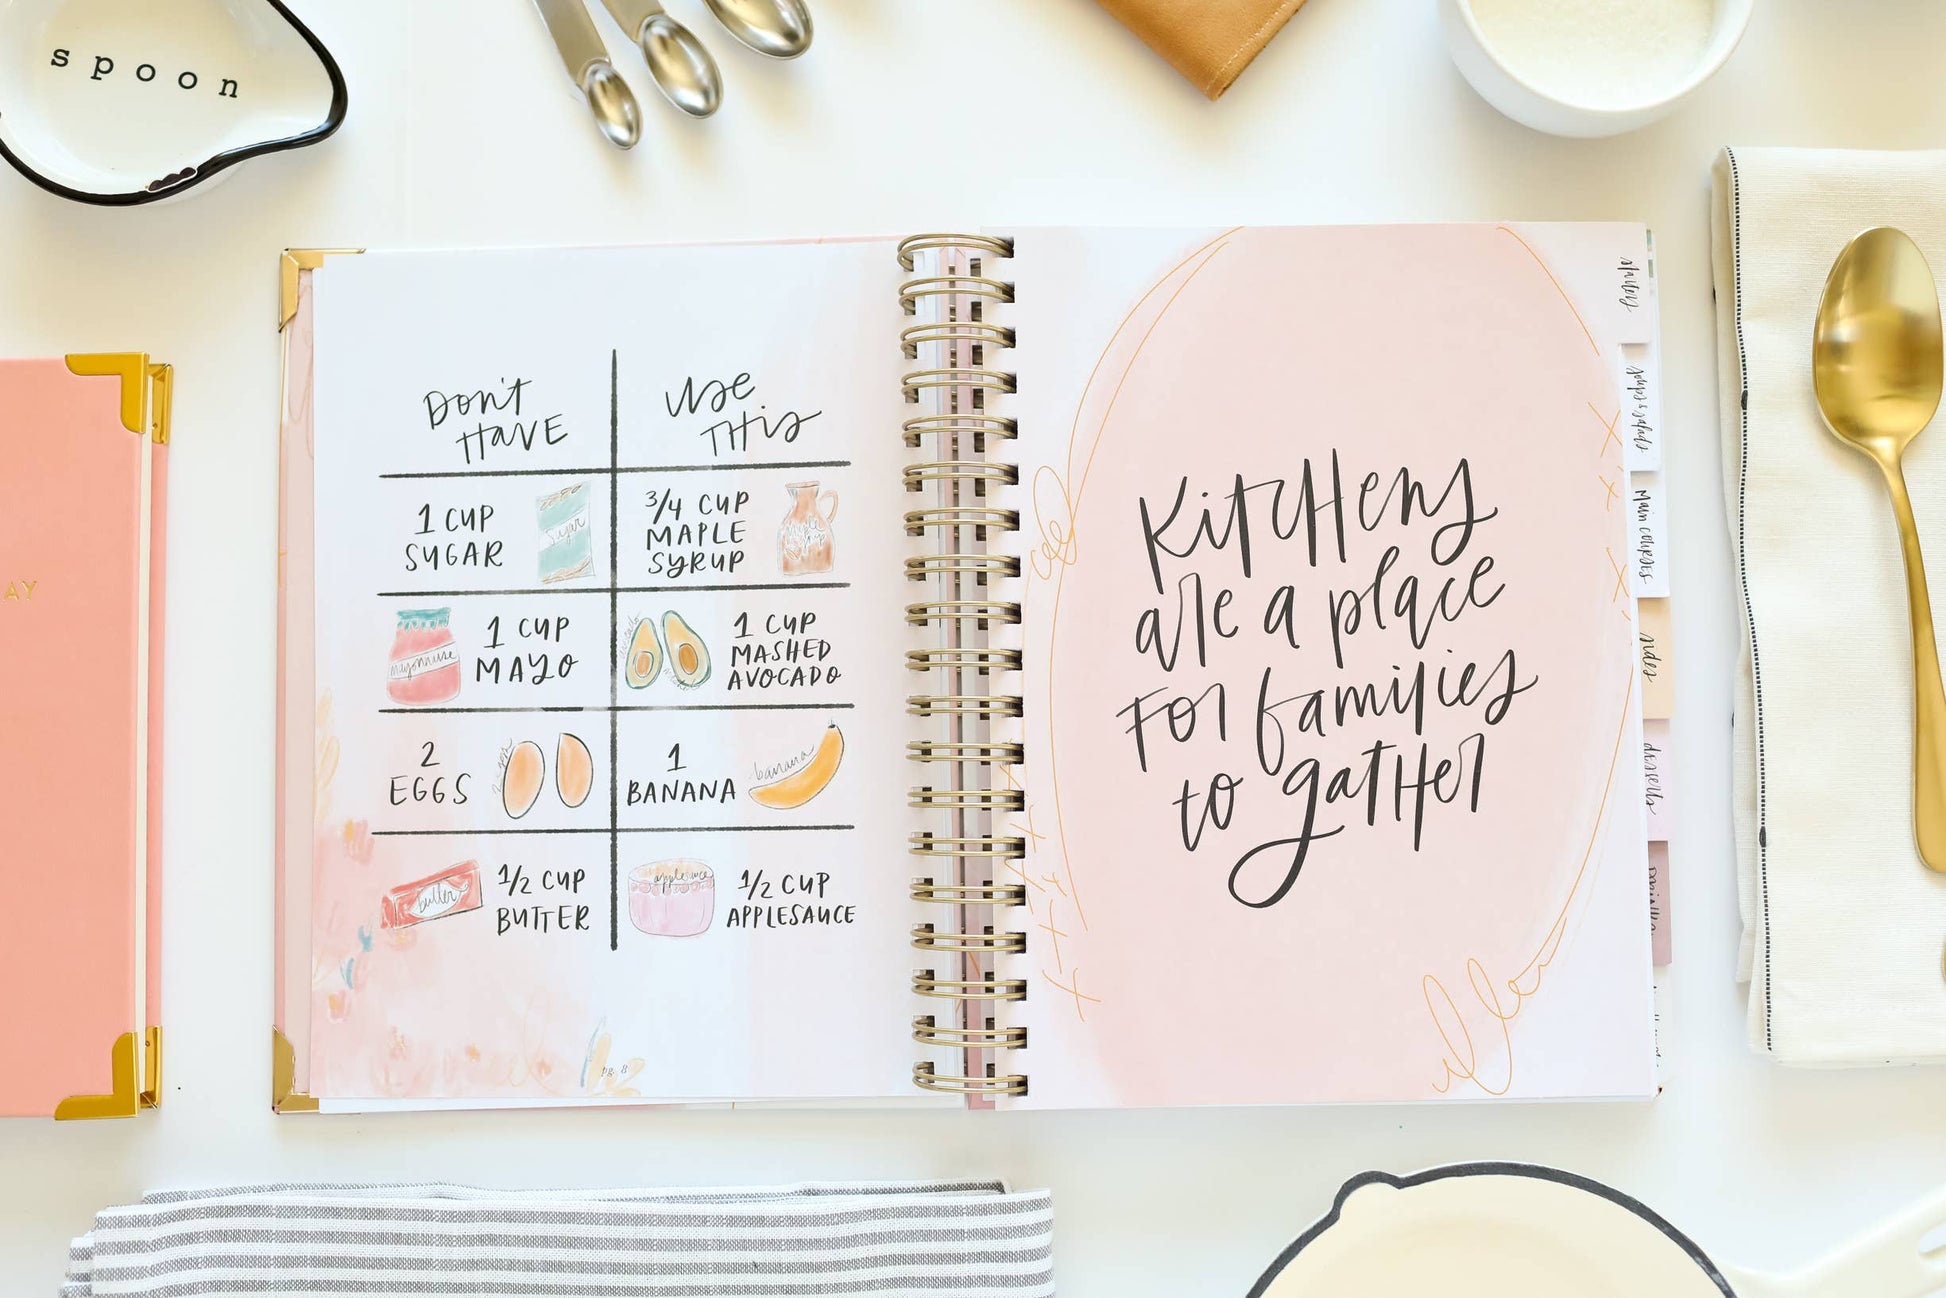 spoon
AY
Don't
HAVE
Use
THis
1 CUP
SUGAR
sugar
3/4 CUP
MAPLE
SYRUP
maple
syrup
mayonnaise
1 CUP
MAYO
avocado
1 CUP
MASHED
AVOCADO
2
EGGS
1
BANANA
banana
butter
1/2 CUP
BUTTER
applesauce
1/2 CUP
APPLESAUCE
pg. 8
KitcHens
are a place
For families
to gatHer
MAIN COURSES
sides
desserts